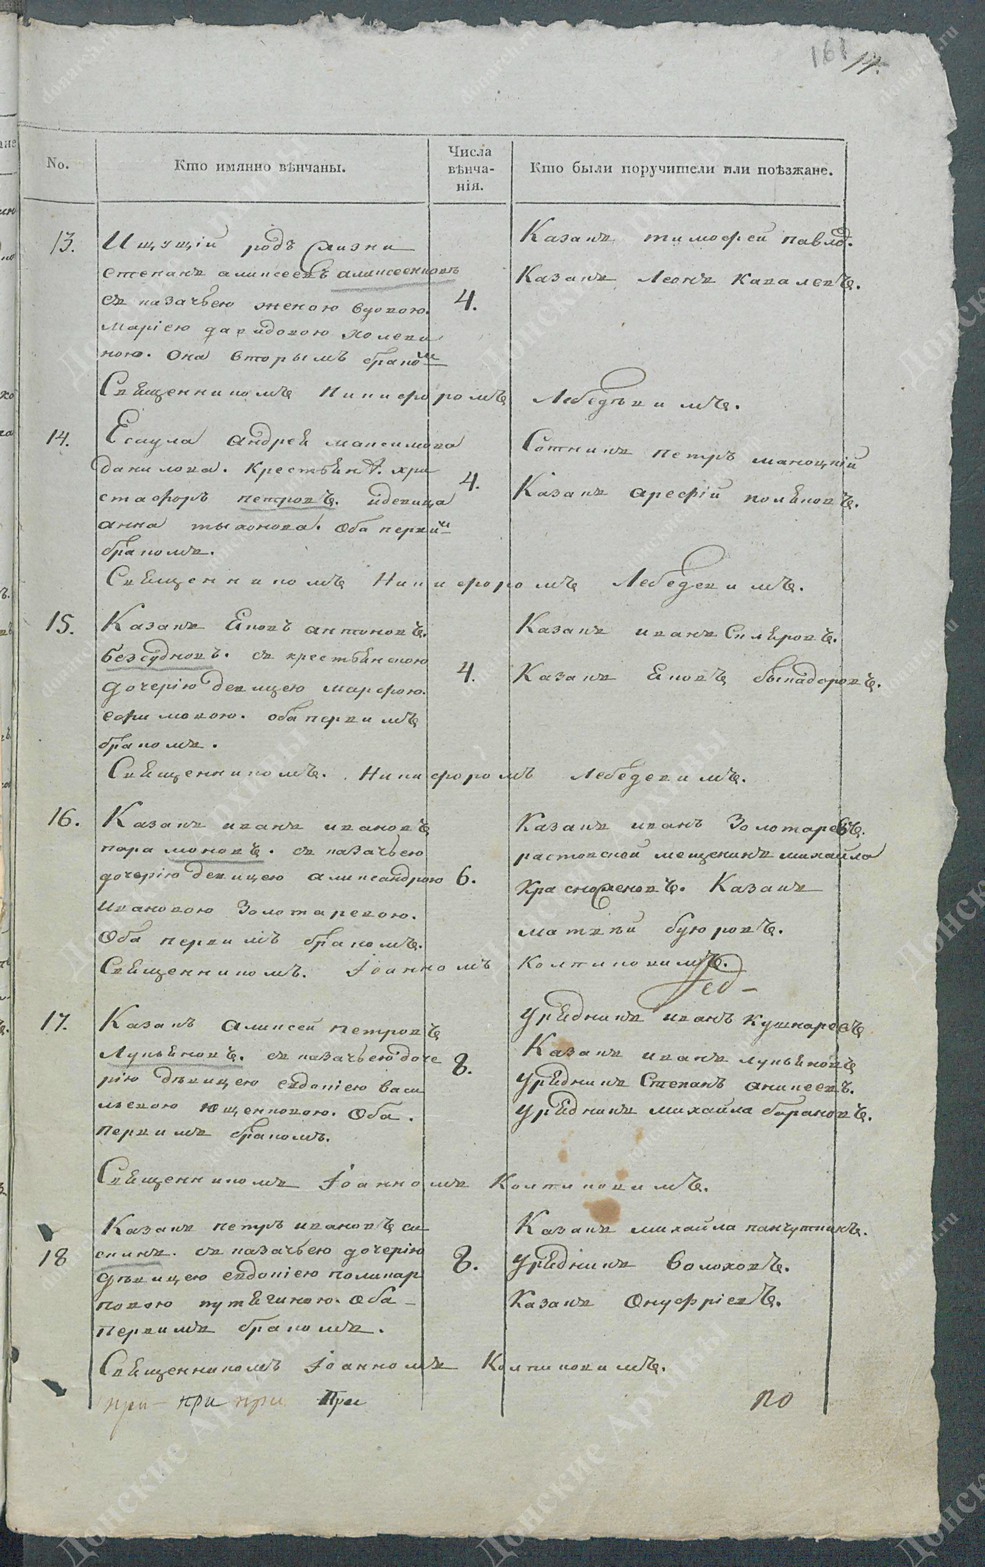 161 14.
No.
Кто имянно вѣнчаны.
Числа
вѣнча-
нія.
Кто были поручители или поѣзжане.
13.
Ищущій родъ жизни
степанъ аликсеевъ
съ казачьею женою вдовою.
Маріею давидовою
ною. Она вторымъ бракомъ
4.
Казакъ тимофей павлов.
Казакъ Леонъ Кавалевъ.
Священникомъ Никифоромъ Лебедевимъ.
14.
Есаула андрея максимова
данилова. Крестьян. хри
стафоръ петровъ. идевица
анна тыхонова. оба первим
бракомъ.
4.
Сотникъ петръ маноцкій
Казакъ арефій поляковъ.
Священникомъ Никифоромъ Лебедевимъ.
15.
Казакъ Яковъ антоновъ.
безсудновъ. съ крестьянскою
дочерію девицею марфою.
ефимовою. оба первимъ
бракомъ.
4.
Казакъ иванъ
Казакъ Яковъ
Священникомъ. Никифоромъ Лебедевимъ.
16.
Казакъ иванъ ивановъ
парамоновъ. съ казачьею
дочерію девицею аликсандрою
Ивановою Золотаревою.
Оба первимъ бракомъ.
6.
Казакъ иванъ Золотаревъ.
растовской мещенинъ михайла
Казакъ
матвѣй буюровъ.
Священникомъ. Іоанномъ Колпиковимъ.
17.
Казакъ Аликсей петровъ
Лукьяновъ. съ казачьею доче
рію дѣвицею евдокіею васи
льевою ющенковою. Оба.
первимъ бракомъ.
8.
Урядникъ иванъ Кушнаревъ
Казакъ иванъ лукьяновъ
Урядникъ Степанъ аникеевъ.
Урядникъ михайла барановъ.
Священникомъ Іоанномъ Колпиковимъ.
18
Казакъ петръ ивановъ си
съ казачьею дочерію
дѣвицею евдокіею поликар
повою путягиною. Оба
первимъ бракомъ.
8.
Казакъ михайла
Урядникъ Болоховъ.
Казакъ Онуфріевъ.
Священникомъ Іоанномъ Колпиковимъ.
при при при При
по
Донские Архивы
donarch.ru